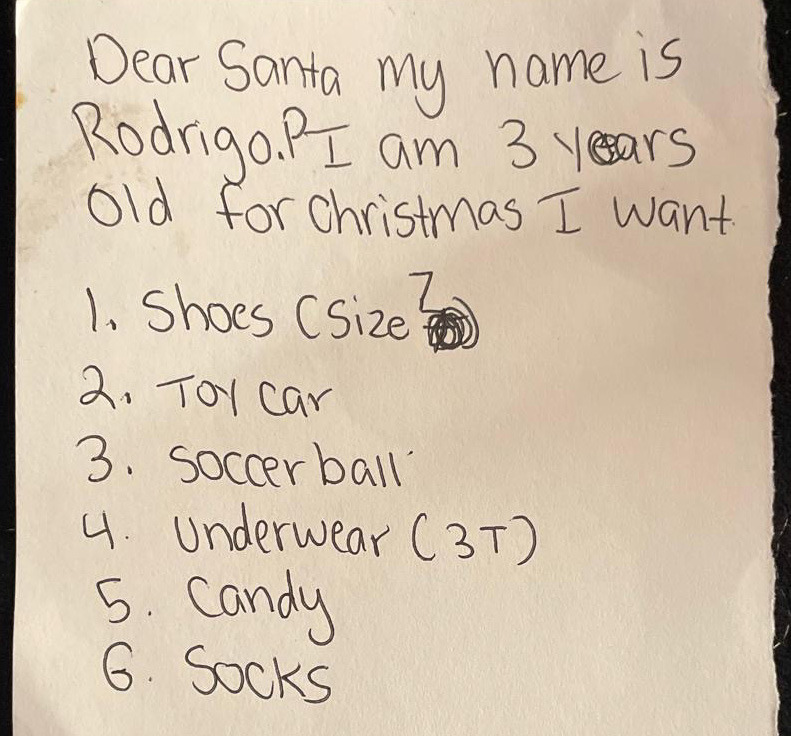 Dear Santa my name is
Rodrigo.P I am 3 years
Old for Christmas I want
1. Shoes (Size 7)
2. Toy car
3. Soccer ball
4. Underwear (3T)
5. Candy
6. Socks